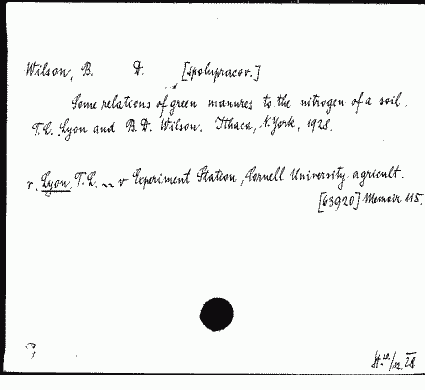 Wilson, B. D. [spolupracov.]
Some relations of green manures to the nitrogen of a soil.
T.L. Lyon and B.D. Wilson. Ithaca, N.York, 1928.
v. Lyon T.L. v Experiment Station, Cornell University agricult.
[63920] Memoir 115.